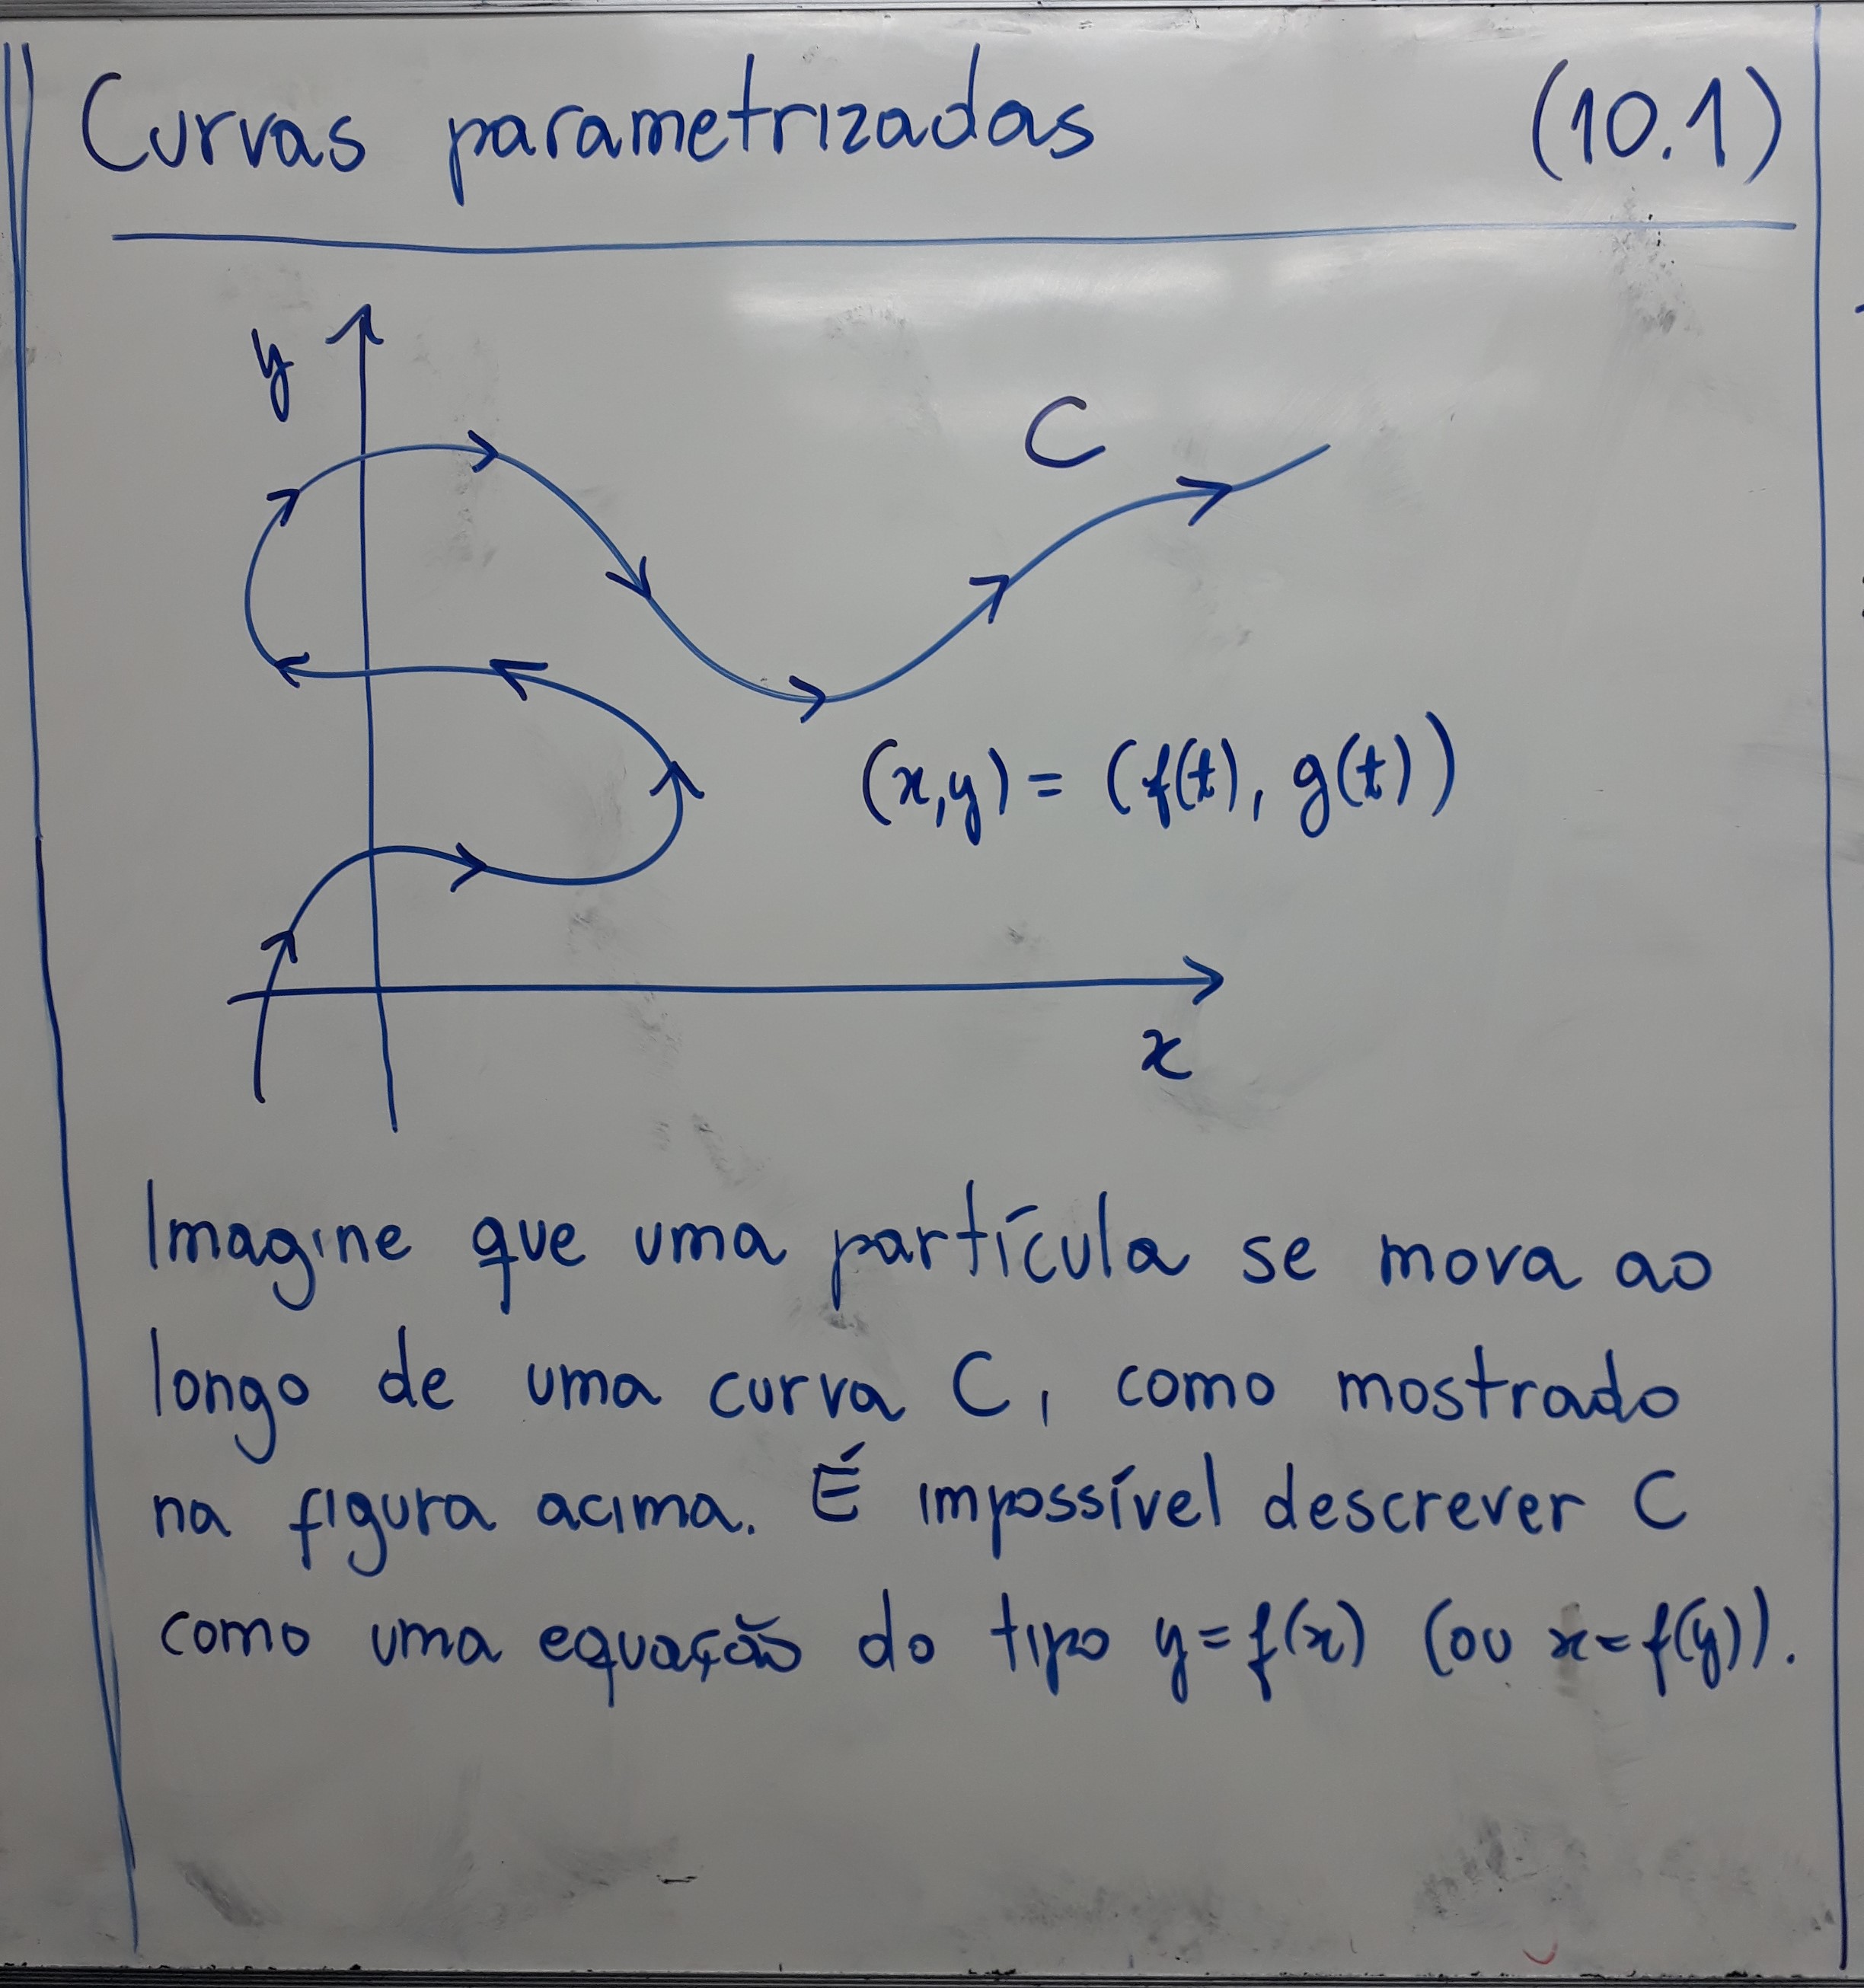 Curvas parametrizadas (10.1)
y
C
(x,y) = (f(t), g(t))
x
Imagine que uma partícula se mova ao
longo de uma curva C, como mostrado
na figura acima. É impossível descrever C
como uma equação do tipo y=f(x) (ou x=f(y)).